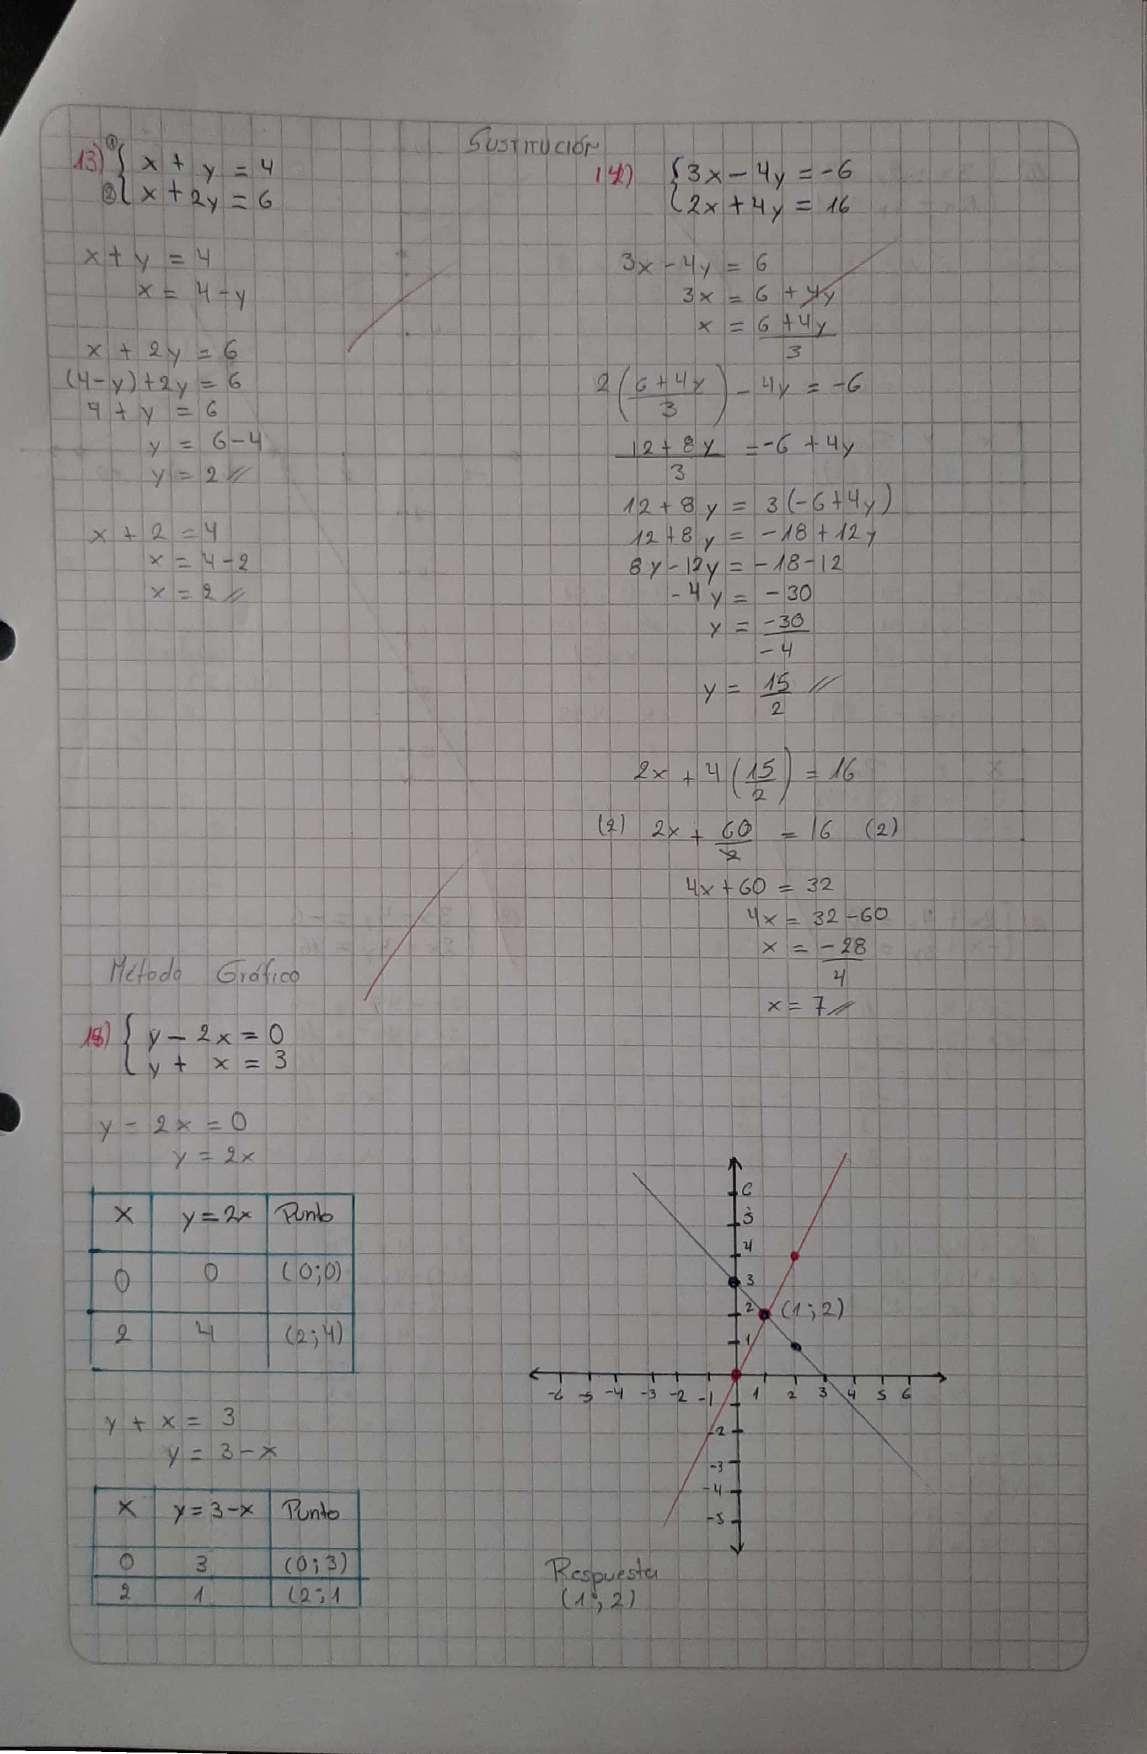 Sustitución
13) ① { x + y = 4
② { x + 2y = 6
x + y = 4
x = 4 - y
x + 2y = 6
(4-y) + 2y = 6
4 + y = 6
y = 6 - 4
y = 2 //
x + 2 = 4
x = 4 - 2
x = 2 //
14) { 3x - 4y = -6
{ 2x + 4y = 16
3x - 4y = 6
3x = 6 + 4y
x = 6 + 4y / 3
2 ( 6 + 4y / 3 ) - 4y = -6
12 + 8y / 3 = -6 + 4y
12 + 8y = 3(-6 + 4y)
12 + 8y = -18 + 12y
8y - 12y = -18 - 12
-4y = -30
y = -30 / -4
y = 15 / 2 //
2x + 4 ( 15 / 2 ) = 16
(2) 2x + 60 / 2 = 16 (2)
4x + 60 = 32
4x = 32 - 60
x = -28 / 4
x = 7 //
Método Gráfico
18) { y - 2x = 0
{ y + x = 3
y - 2x = 0
y = 2x
x y = 2x Punto
0 0 (0;0)
2 4 (2;4)
y + x = 3
y = 3 - x
x y = 3 - x Punto
0 3 (0;3)
2 1 (2;1
6
5
4
3
2 (1;2)
1
-6 -5 -4 -3 -2 -1 1 2 3 4 5 6
-2
-3
-4
-5
Respuesta
(1;2)